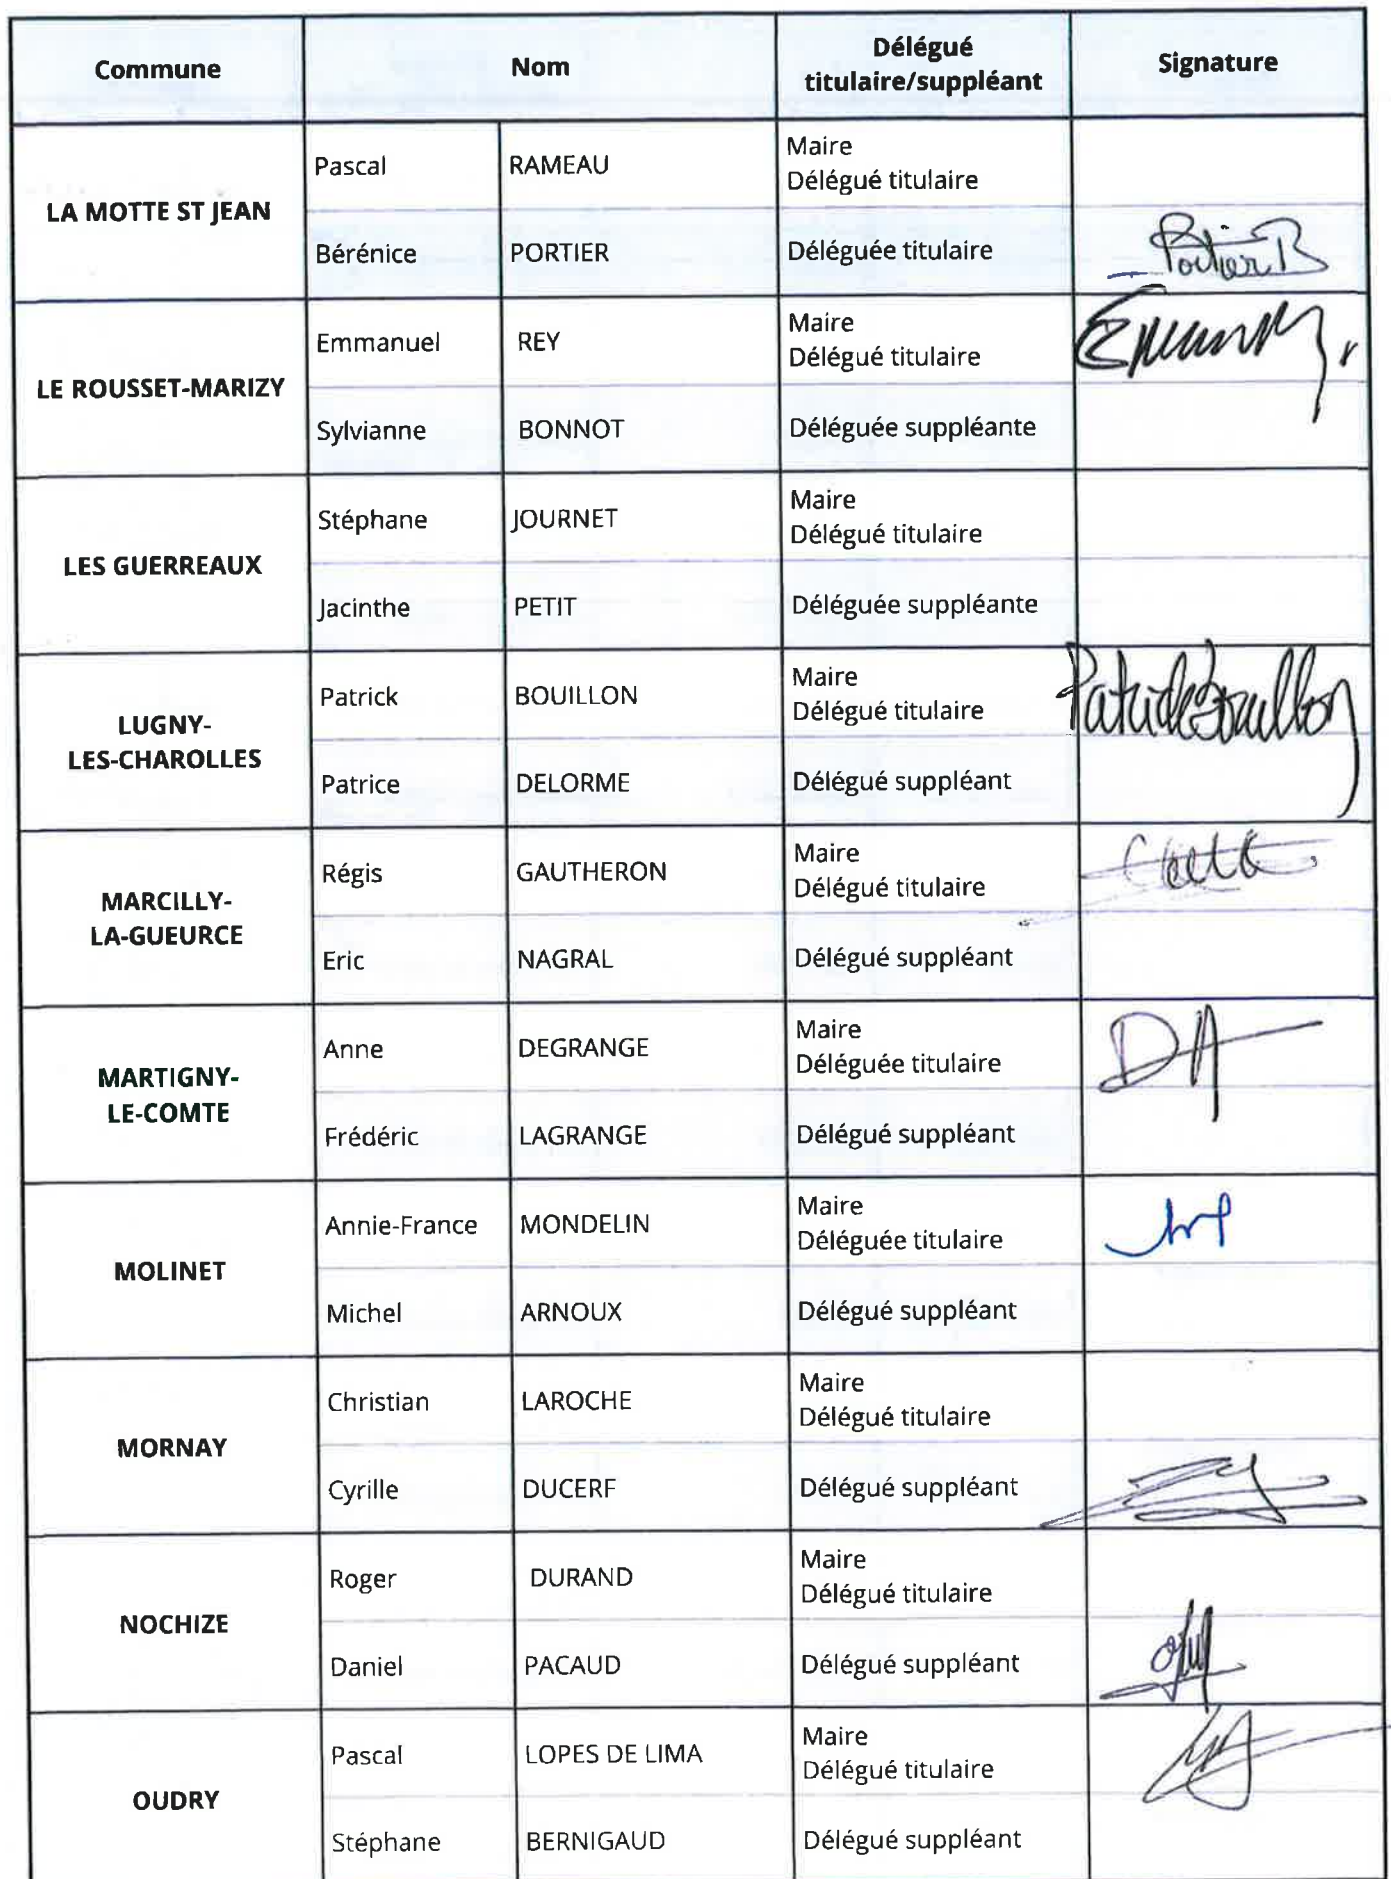 Commune Nom Délégué titulaire/suppléant Signature
LA MOTTE ST JEAN
Pascal RAMEAU Maire
Délégué titulaire
Bérénice PORTIER Déléguée titulaire Portier B
LE ROUSSET-MARIZY
Emmanuel REY Maire
Délégué titulaire
Sylvianne BONNOT Déléguée suppléante
LES GUERREAUX
Stéphane JOURNET Maire
Délégué titulaire
Jacinthe PETIT Déléguée suppléante
LUGNY-
LES-CHAROLLES
Patrick BOUILLON Maire
Délégué titulaire Patrick Bouillon
Patrice DELORME Délégué suppléant
MARCILLY-
LA-GUEURCE
Régis GAUTHERON Maire
Délégué titulaire
Eric NAGRAL Délégué suppléant
MARTIGNY-
LE-COMTE
Anne DEGRANGE Maire
Déléguée titulaire DA
Frédéric LAGRANGE Délégué suppléant
MOLINET
Annie-France MONDELIN Maire
Déléguée titulaire
Michel ARNOUX Délégué suppléant
MORNAY
Christian LAROCHE Maire
Délégué titulaire
Cyrille DUCERF Délégué suppléant
NOCHIZE
Roger DURAND Maire
Délégué titulaire
Daniel PACAUD Délégué suppléant
OUDRY
Pascal LOPES DE LIMA Maire
Délégué titulaire
Stéphane BERNIGAUD Délégué suppléant